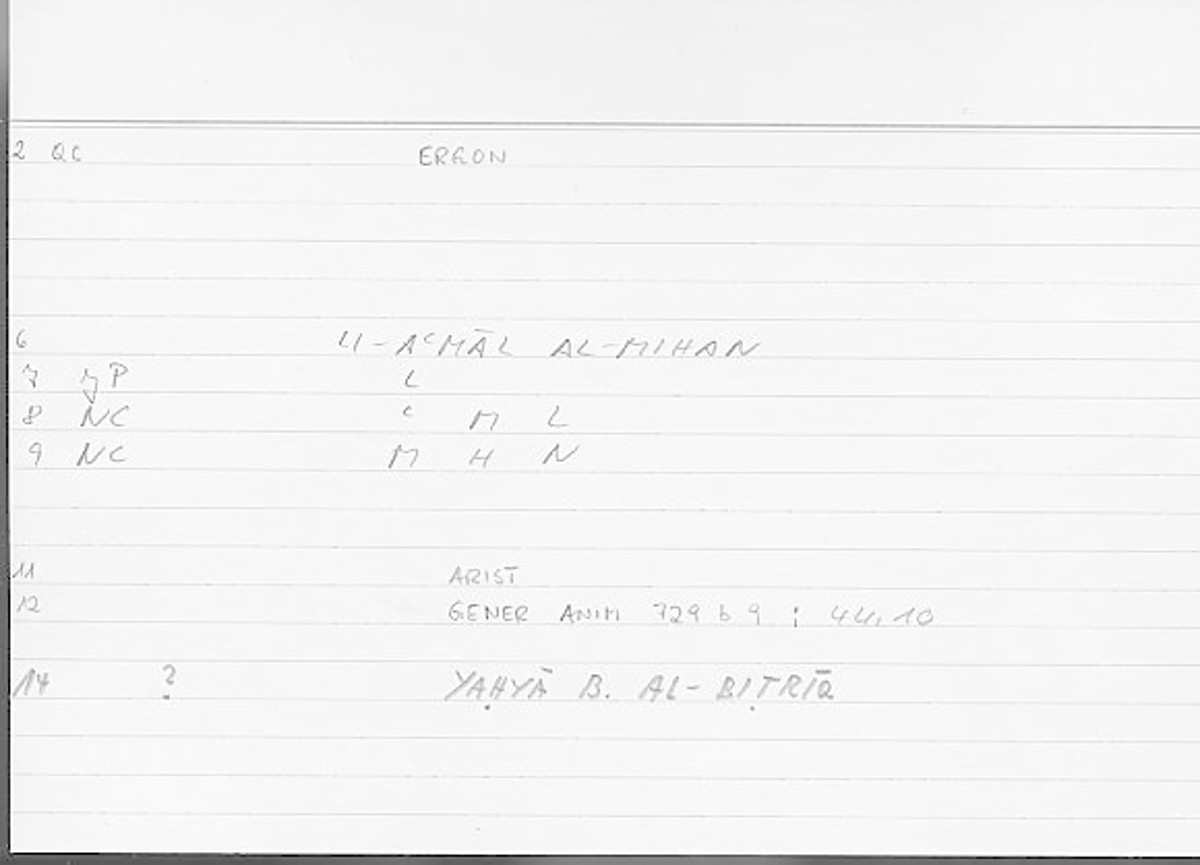 2 QC ERGON
6 LI-AʿMĀL AL-MIHAN
7 yP L
8 NC ʿ M L
9 NC M H N
11 ARIST
12 GENER ANIM 729 b 9 ; 44,10
14 ? YAḤYĀ B. AL-BIṬRĪQ